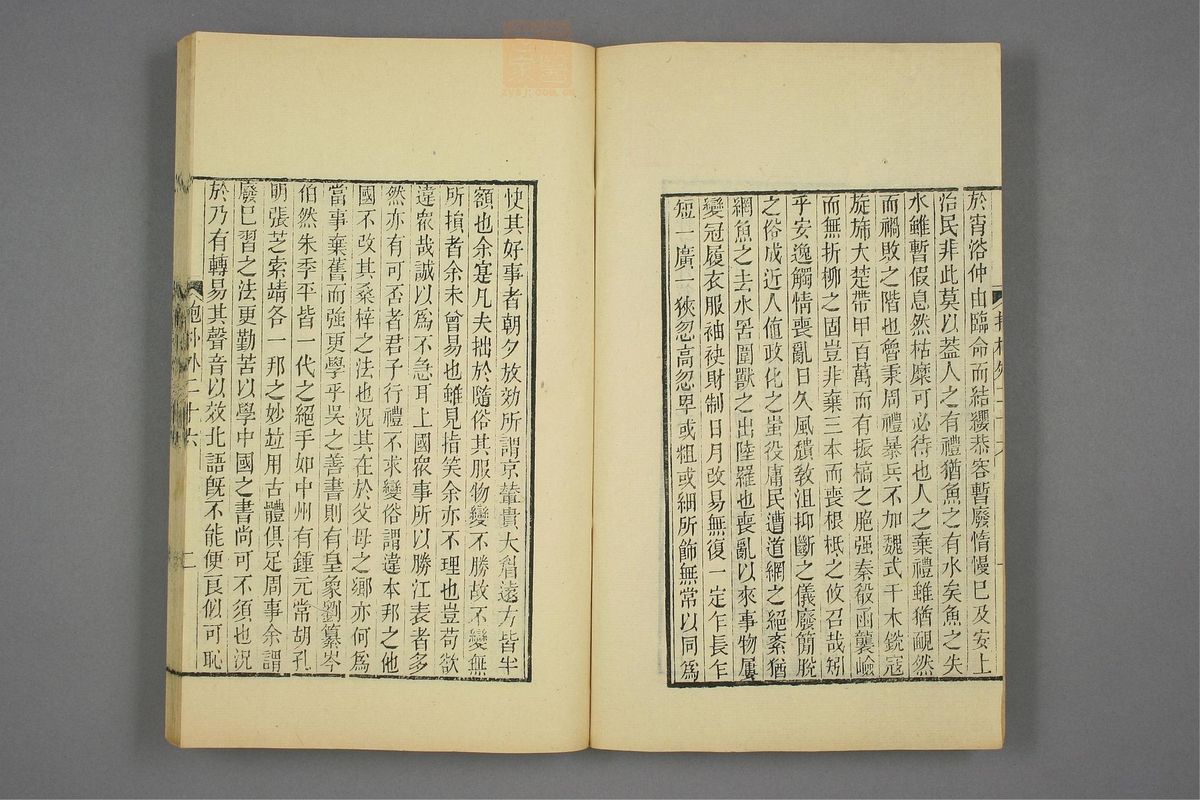 於宵浴仲由臨命而結纓恭容暫廢惰慢已及安上
治民非此莫以葢人之有禮猶魚之有水矣魚之失
水雖暫假息然枯糜可必待也人之棄禮雖猶靦然
而禍敗之階也曾秉周禮暴兵不加魏式干木銳寇
旋斾大楚帶甲百萬而有振槁之脆强秦殽函襲嶮
而無折柳之固豈非棄三本而喪根柢之攸召哉矧
乎安逸觸情喪亂日久風穨敎沮抑斷之儀廢簡脫
之俗成近人値政化之蚩役庸民遭道網之絕紊猶
網魚之去水罟圍獸之出陸羅也喪亂以來事物屢
變冠履衣服袖袂財制日月改易無復一定乍長乍
短一廣一狹忽高忽卑或粗或細所飾無常以同爲
快其好事者朝夕放効所謂京輦貴大眉遠方皆半
額也余寔凡夫拙於隨俗其服物變不勝故不變無
所損者余未曾易也雖見指笑余亦不理也豈苟欲
違衆哉誠以爲不急耳上國衆事所以勝江表者多
然亦有可否者君子行禮不求變俗謂違本邦之他
國不改其桑梓之法也況其在於父母之鄉亦何爲
當事棄舊而強更學乎吳之善書則有皇象劉纂岑
伯然朱季平皆一代之絕手如中州有鍾元常胡孔
明張芝索靖各一邦之妙竝用古體俱足周事余謂
廢已習之法更勤苦以學中國之書尚可不須也況
於乃有轉易其聲音以效北語旣不能便良似可恥
抱朴外二十六
二